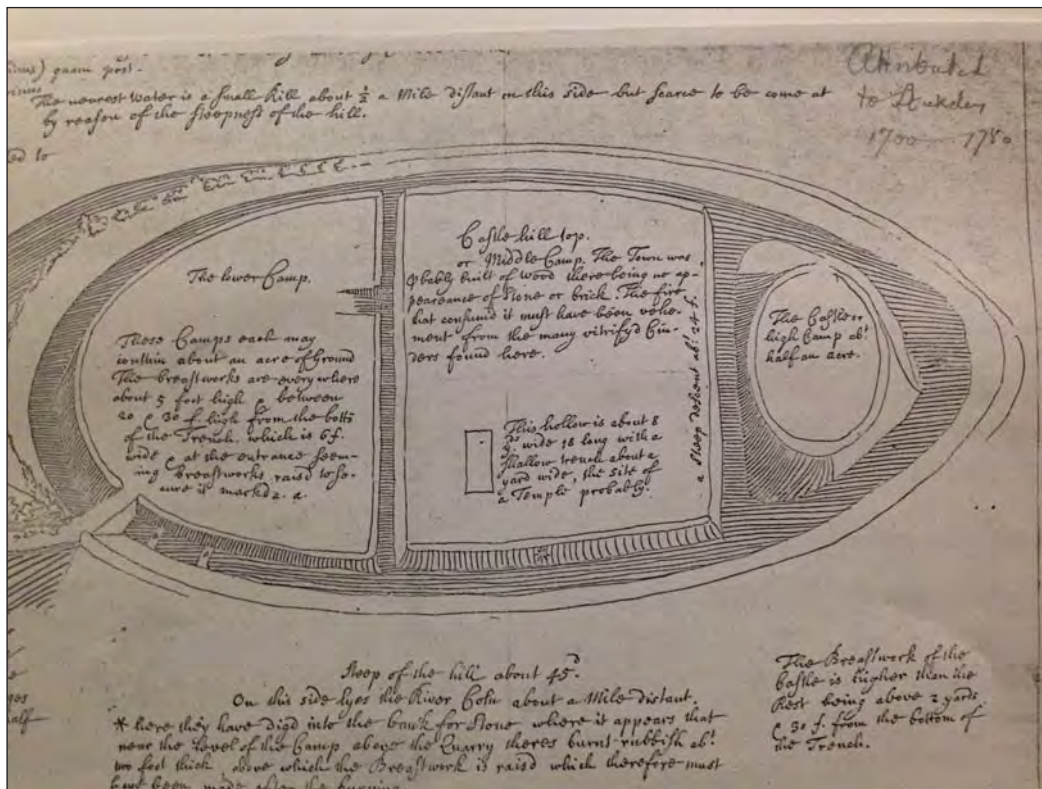 post.
The nearest Water is a small Rill about ½ a Mile distant on this side but scarce to be come at
by reason of the steepness of the hill.
Attributed
to Stukeley
1700 1780
ed to
The lower Camp.
These Camps each may
contain about an acre of Ground
The breastworks are every where
about 5 foot high & between
20 & 30 f. high from the bottō
of the Trench which is 6 f.
wide & at the entrance seem-
ing Breastworks raisd to se-
cure it markd a. a.
Castle hill top.
or Middle Camp. The Town was
pbably built of wood there being no ap-
pearance of stone or brick. The fire
that consumd it must have been vehe-
ment from the many vitrifyd Cin-
ders found here.
This hollow is about 8
yds. wide 18 long with a
shallow trench about a
yard wide, the site of
a Temple probably.
a steep descent abt. 24 f.
The Castle or
high Camp abt.
half an acre.
steep of the hill about 45d.
On this side lyes the River Coln about a Mile distant.
* here they have digd into the bank for stone where it appears that
near the Level of the Camp above the Quarry theres burnt rubbish abt.
two foot thick above which the Breastwork is raisd which therefore must
have been made after the burning
The Breastwork of the
Castle is higher than the
Rest being above 2 yards
& 30 f. from the bottom of
the Trench.
half